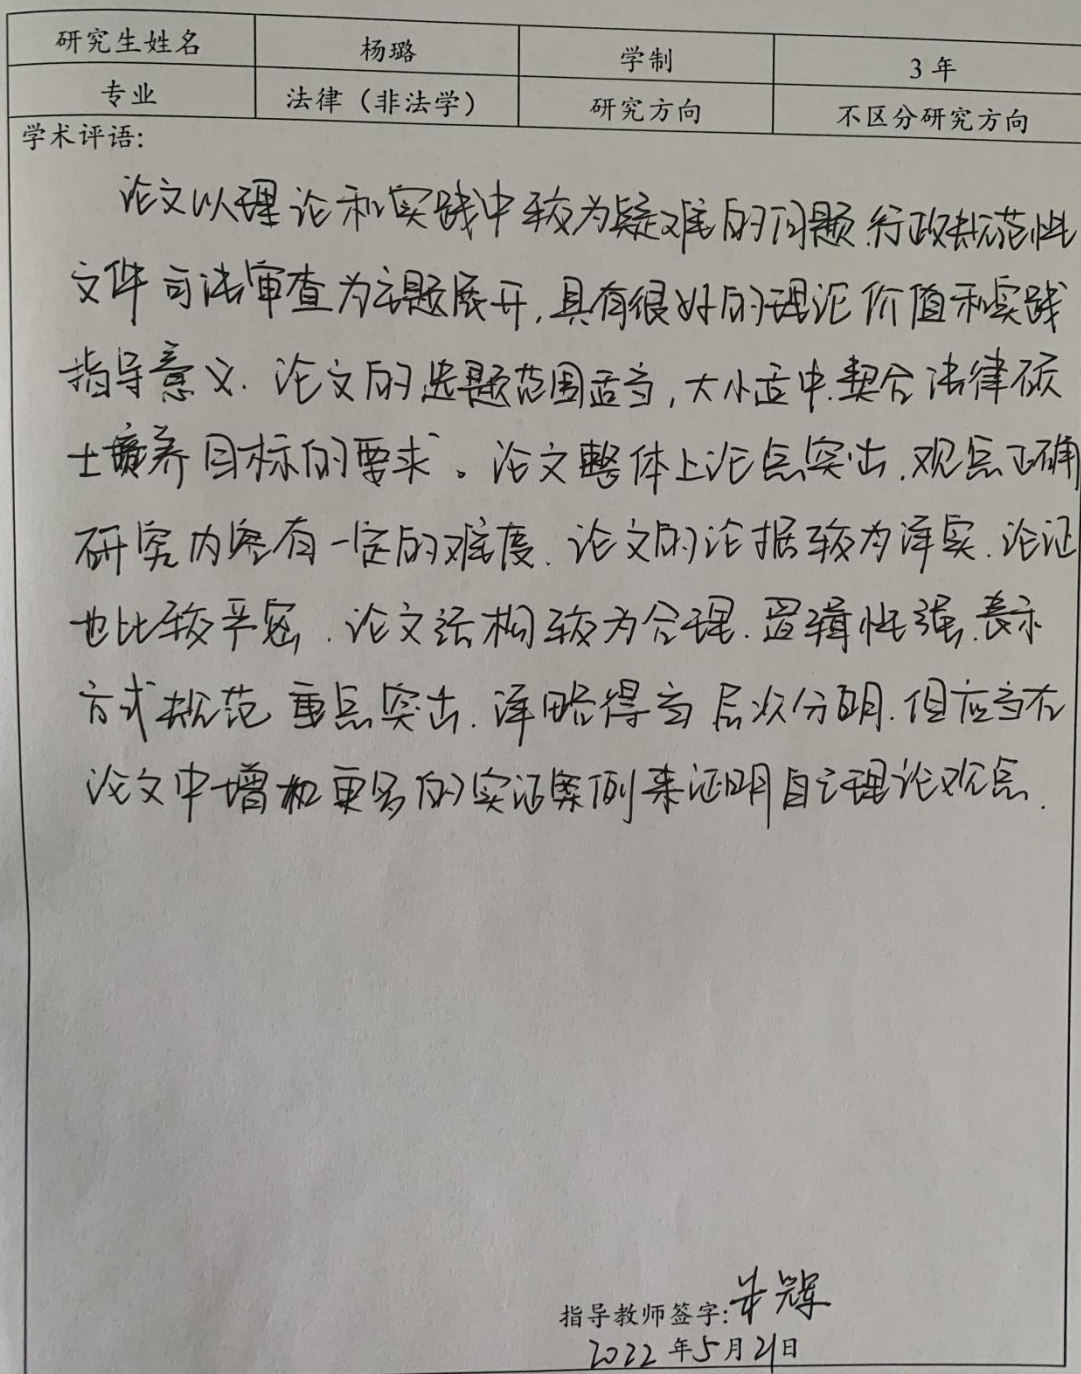 研究生姓名 杨璐 学制 3年
专业 法律（非法学） 研究方向 不区分研究方向
学术评语:
论文以理论和实践中较为疑难的问题.行政规范性
文件司法审查为主题展开,具有很好的理论价值和实践
指导意义.论文的选题范围适当,大小适中.契合法律硕
士培养目标的要求。论文整体上论点突出.观点正确
研究内容有一定的难度.论文的论据较为详实.论证
也比较严密.论文结构较为合理.逻辑性强.表示
方式规范 重点突出.详略得当 层次分明.但应当在
论文中增加更多的实证案例来证明自己理论观点.
指导教师签字:
2022年5月21日